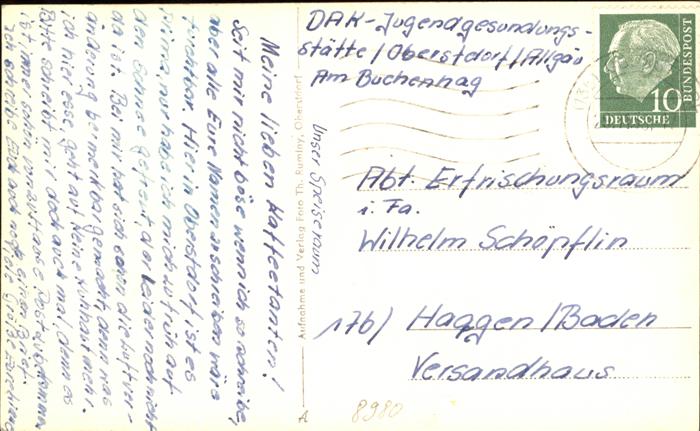 DAK-Jugendgesundungs-
stätte/Oberstdorf/Allgäu
Am Buchenhag
DEUTSCHE
BUNDESPOST
10
Abt. Erfrischungsraum
i. Fa.
Wilhelm Schöpflin
17b/ Haagen/Baden
Versandhaus
Unser Speiseraum
Aufnahme und Verlag Foto Th. Ruminy, Oberstdorf
A
8980
Meine lieben Kaffeetanten!
Seit mir nicht böse wenn ich so schreibe,
aber alle Eure Namen anschreiben wäre
furchtbar. Hier in Oberstdorf ist es
Prima, nur habe ich mich so früh auf
den Schnee gefreut, der leider noch nicht
da ist. Bei mir hat sich schon die Luftver-
änderung bemerkbar gemacht, denn was
ich hier esse, geht auf keine Kuhhaut mehr.
Bitte schreibt mir doch auch mal, denn es
ist immer schön, wenn man Post bekommt.
Ich schreibe Euch auch noch einen Brief.
viele Grüße